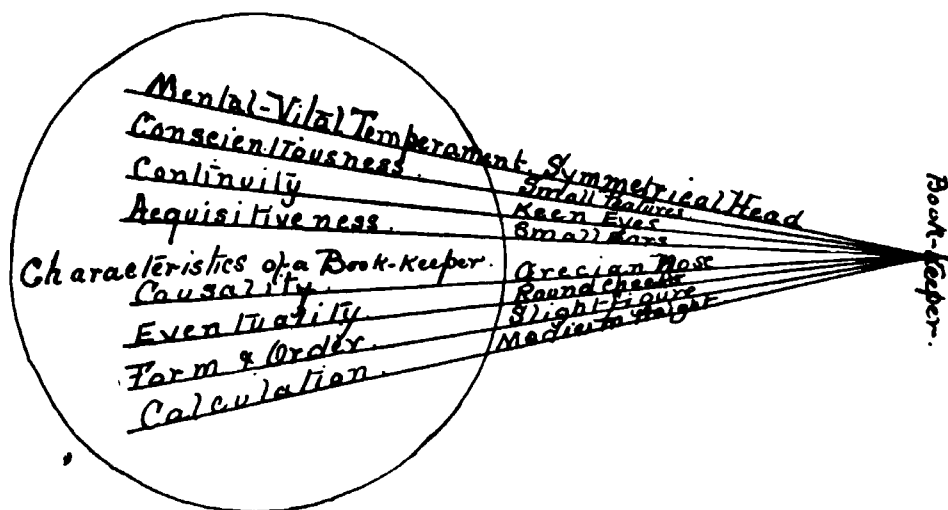 Mental-Vital Temperament. Symmetrical Head
Conscientiousness. Small Features.
Continuity Keen Eyes
Acquisitiveness. Small Ears
Characteristics of a Book-Keeper.
Causality. Grecian Nose
Eventuality. Round Cheeks
Form & Order. Slight Figure
Calculation. Medium Height
Book-Keeper.